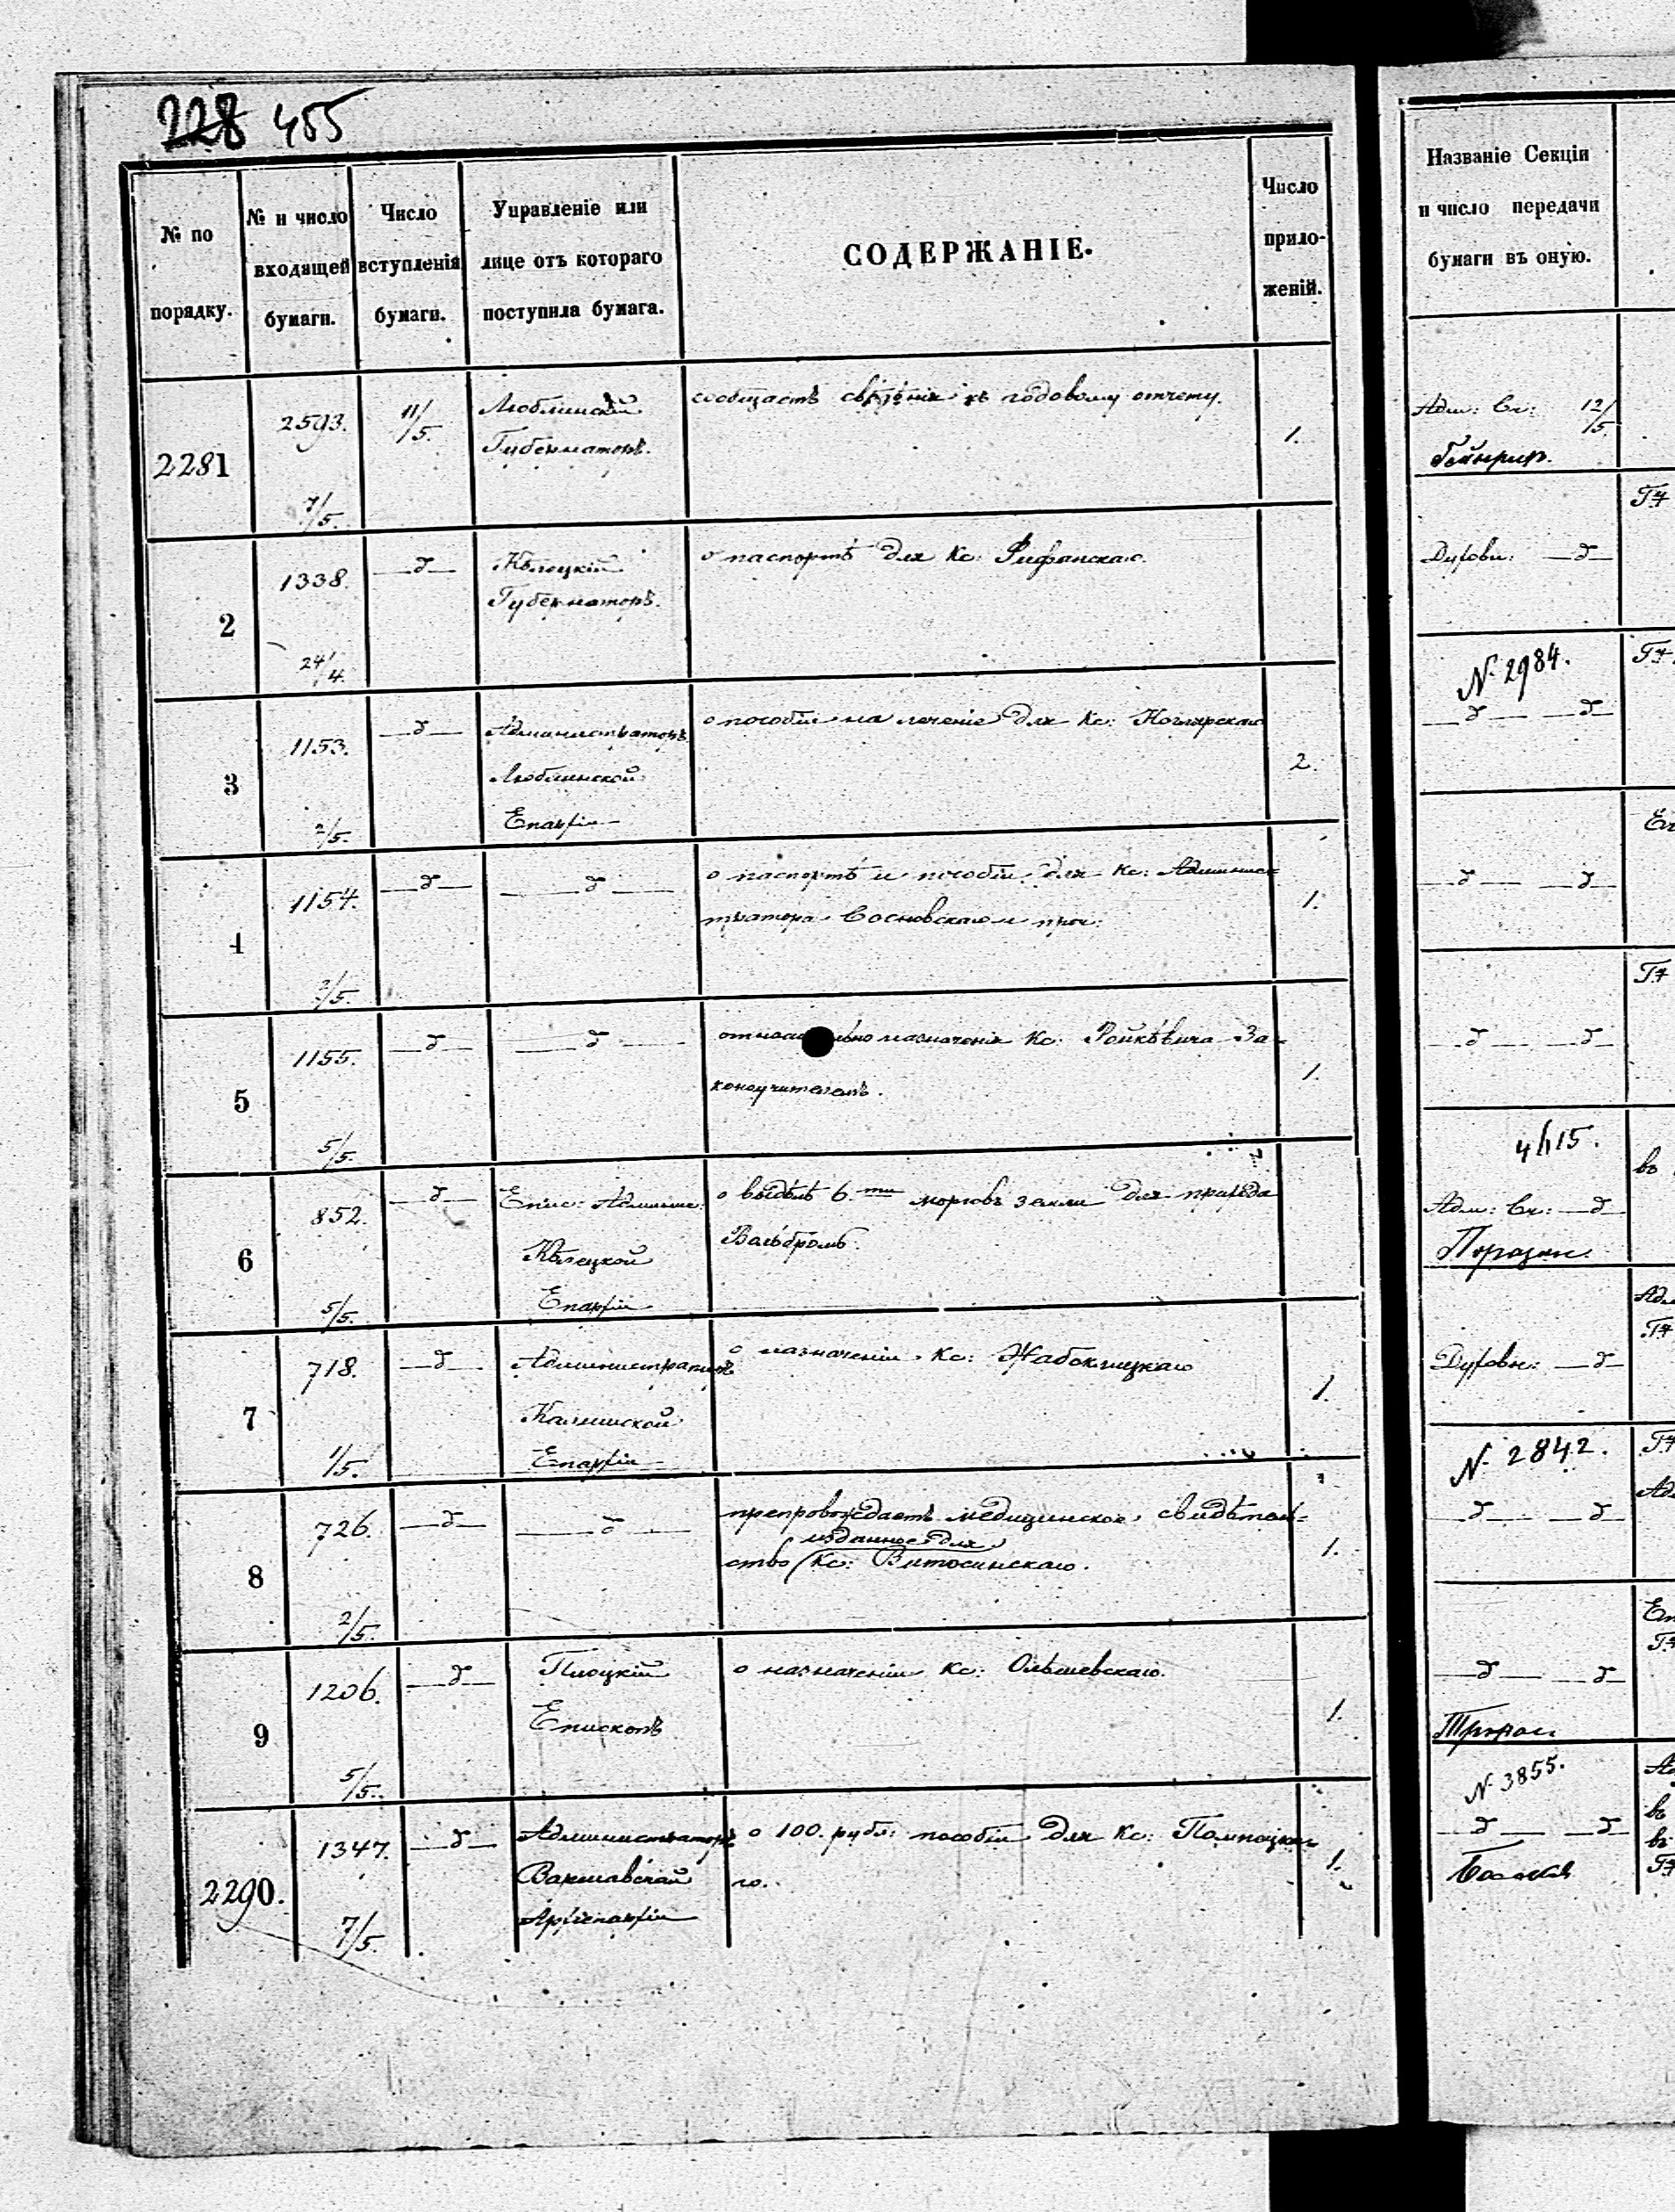 228 455
№ по порядку.
№ и число входящей бумаги.
Число вступленія бумаги.
Управленіе или лице отъ котораго поступила бумага.
СОДЕРЖАНІЕ.
Число прило-
женій.
2281
2593.
7/5.
11/5.
Люблинскій
Губернаторъ.
сообщаетъ свѣдѣнія къ годовому отчету.
1.
2
1338.
24/4.
—д—
Кѣлецкій
Губернаторъ.
о паспортѣ для Кс:
3
1153.
2/5.
—д—
Администраторъ
Люблинской
Епархіи
о пособіи на леченіе для Кс:
2.
4
1154.
2/5.
—д—
—д—
о паспортѣ и пособіи для Кс: Админис-
тратора Сосновскаго и проч:
1.
5
1155.
5/5.
—д—
—д—
назначенія Кс: Войкѣвича За-
коноучителемъ.
1.
6
852.
5/5.
—д—
Епис: Админис:
Кѣлецкой
Епархіи
о выдѣлѣ 6.ти морговъ земли для прихода
Вольбромъ.
7
718.
1/5.
—д—
Администраторъ
Калишской
Епархіи
о назначеніи Кс: Жабоклицкаго
1.
8
726.
2/5.
—д—
—д—
препровождаетъ медицинское свидѣтель-
изданное для
ство Кс: Витосинскаго.
1.
9
1206.
5/5.
—д—
Плоцкій
Епископъ
о назначеніи Кс: Ольшевскаго.
1.
2290.
1347.
7/5.
—д—
Администраторъ
Варшавской
Архіепархіи
о 100. рубл: пособіи для Кс:
го.
1.
Названіе Секціи
и число передачи
бумаги въ оную.
Адм: Ск: 12/5.
Духовн: —д—
N. 2984.
—д— —д—
—д— —д—
—д— —д—
4115.
Адм: Ск: —д—
Духовн: —д—
N. 2842.
—д— —д—
—д— —д—
N. 3855.
—д— —д—